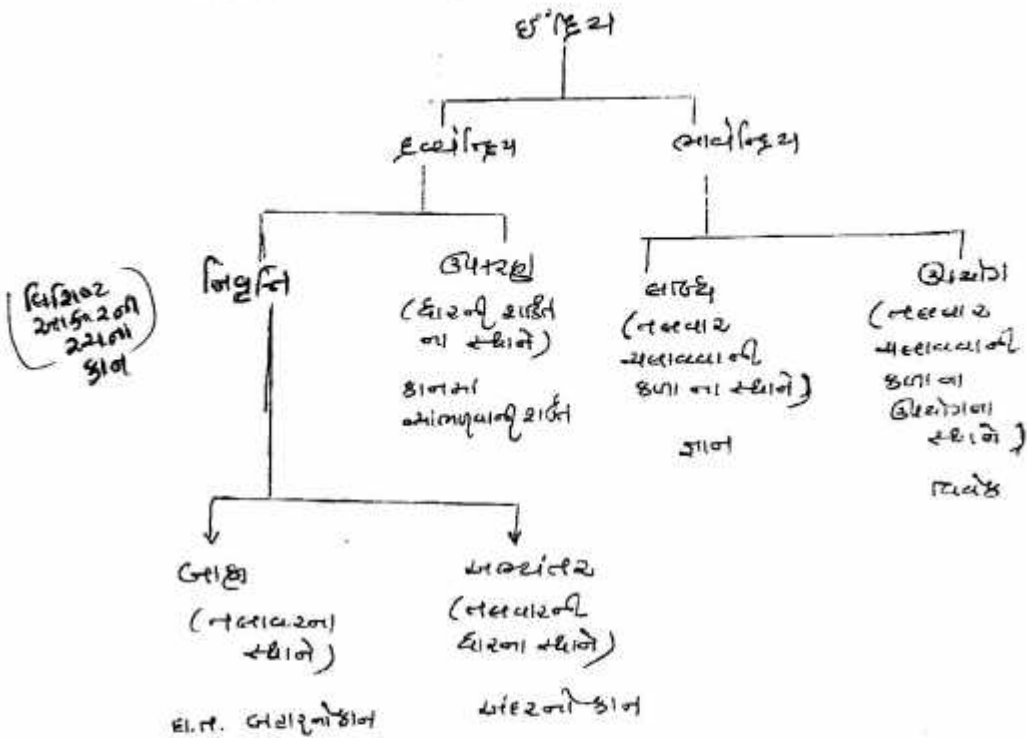 ઈંદ્રિય
દ્રવ્યેન્દ્રિય
ભાવેન્દ્રિય
નિવૃત્તિ
(વિશિષ્ટ
આકારની
રચના
કાન)
ઉપકરણ
(ધારની શક્તિ
ના સ્થાને)
કાનમાં
સાંભળવાની શક્તિ
લબ્ધિ
(તલવાર
ચલાવવાની
કળા ના સ્થાને)
જ્ઞાન
ઉપયોગ
(તલવાર
ચલાવવાની
કળા ના
ઉપયોગના
સ્થાને)
વિવેક
બાહ્ય
(તલવારના
સ્થાને)
દા.ત. બહારનો કાન
અભ્યંતર
(તલવારની
ધારના સ્થાને)
અંદરનો કાન